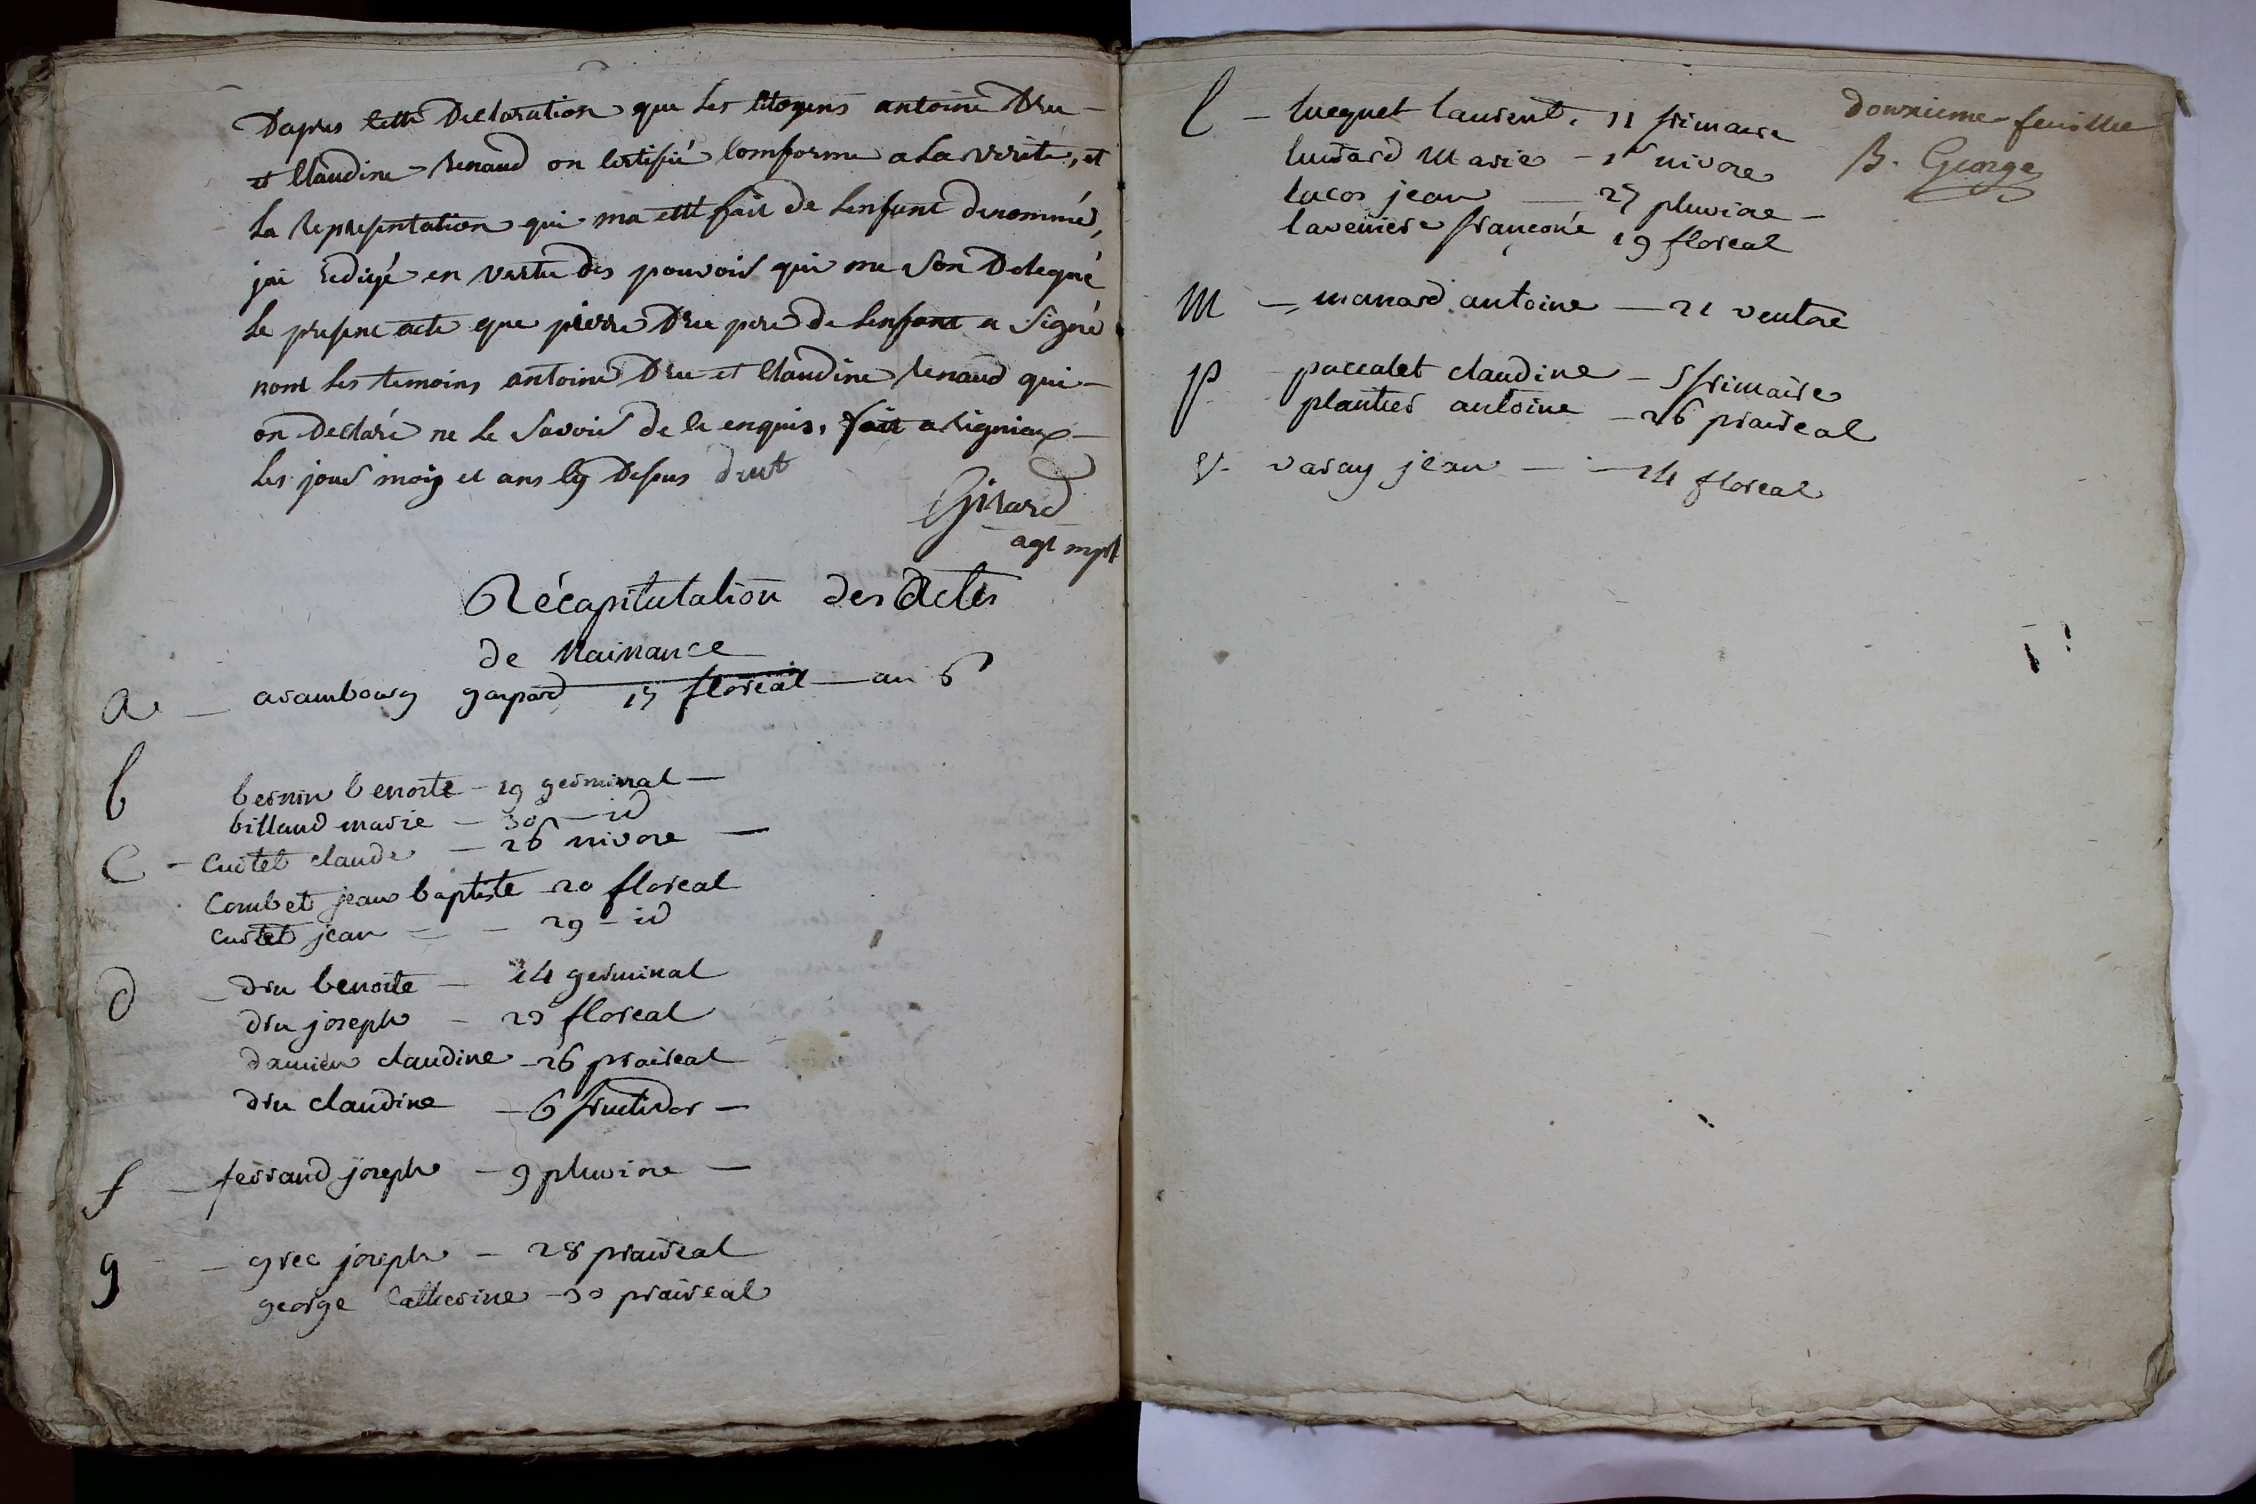 Dapres cette Declaration que les citoyens antoine Dru
et Claudine renaud on certifié comforme a la verite, et
la representation qui ma etté fait de lenfant denommé,
jai redigé en vertu des pouvoir qui me son Delegué
le present acte que pierre Dru pere de lenfant a signé
nont les temoins antoine Dru et Claudine renaud qui
on Declaré ne le savoir de ce enquis, fait a Lignieux
les jour mois et ans cy Desus drut
Girard
agt mpl
Récapitulation des Actes
de Naissance
a. arambourg gaspard 15 floréal an 6
b bernin benoite - 19 germinal
billaud marie - 30 - id
C - curtet claude - 26 nivose
Combet jean baptiste 20 floreal
curtet jean - 29 - id
d - dru benoite - 14 germinal
dru joseph - 23 floreal
damien claudine - 26 praireal
dru claudine - 6 fructidor
f - ferrand joseph - 9 pluviose
g - grec joseph - 28 praireal
george Catherine - 30 praireal
douxieme feuillie
B. George
l - lucquet laurent, 11 frimaire
luizard Marie - 1er nivose
lacos jean - 25 pluviose
laveniere françoise 19 floreal
M - manard antoine - 21 ventose
p paccalet claudine - 5 frimaire
plantier antoine - 26 praireal
v. varay jean - 14 floreal